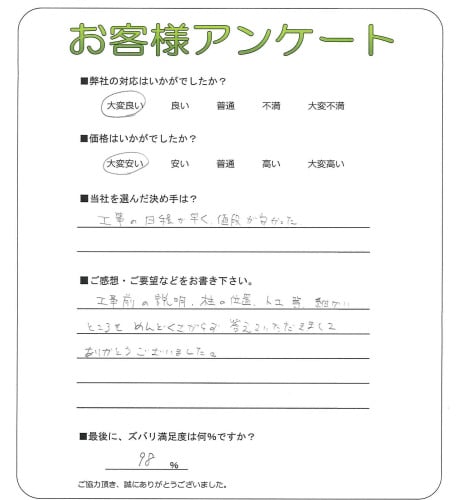 お客様アンケート
■弊社の対応はいかがでしたか?
大変良い 良い 普通 不満 大変不満
■価格はいかがでしたか?
大変安い 安い 普通 高い 大変高い
■当社を選んだ決め手は?
工事の日程が早く、値段が安かった
■ご感想・ご要望などをお書き下さい。
工事前の説明、柱の位置、人工 等、細かい
ところを めんどくさがらず 答えていただきまして
ありがとうございました。
■最後に、ズバリ満足度は何%ですか?
98 %
ご協力頂き、誠にありがとうございました。